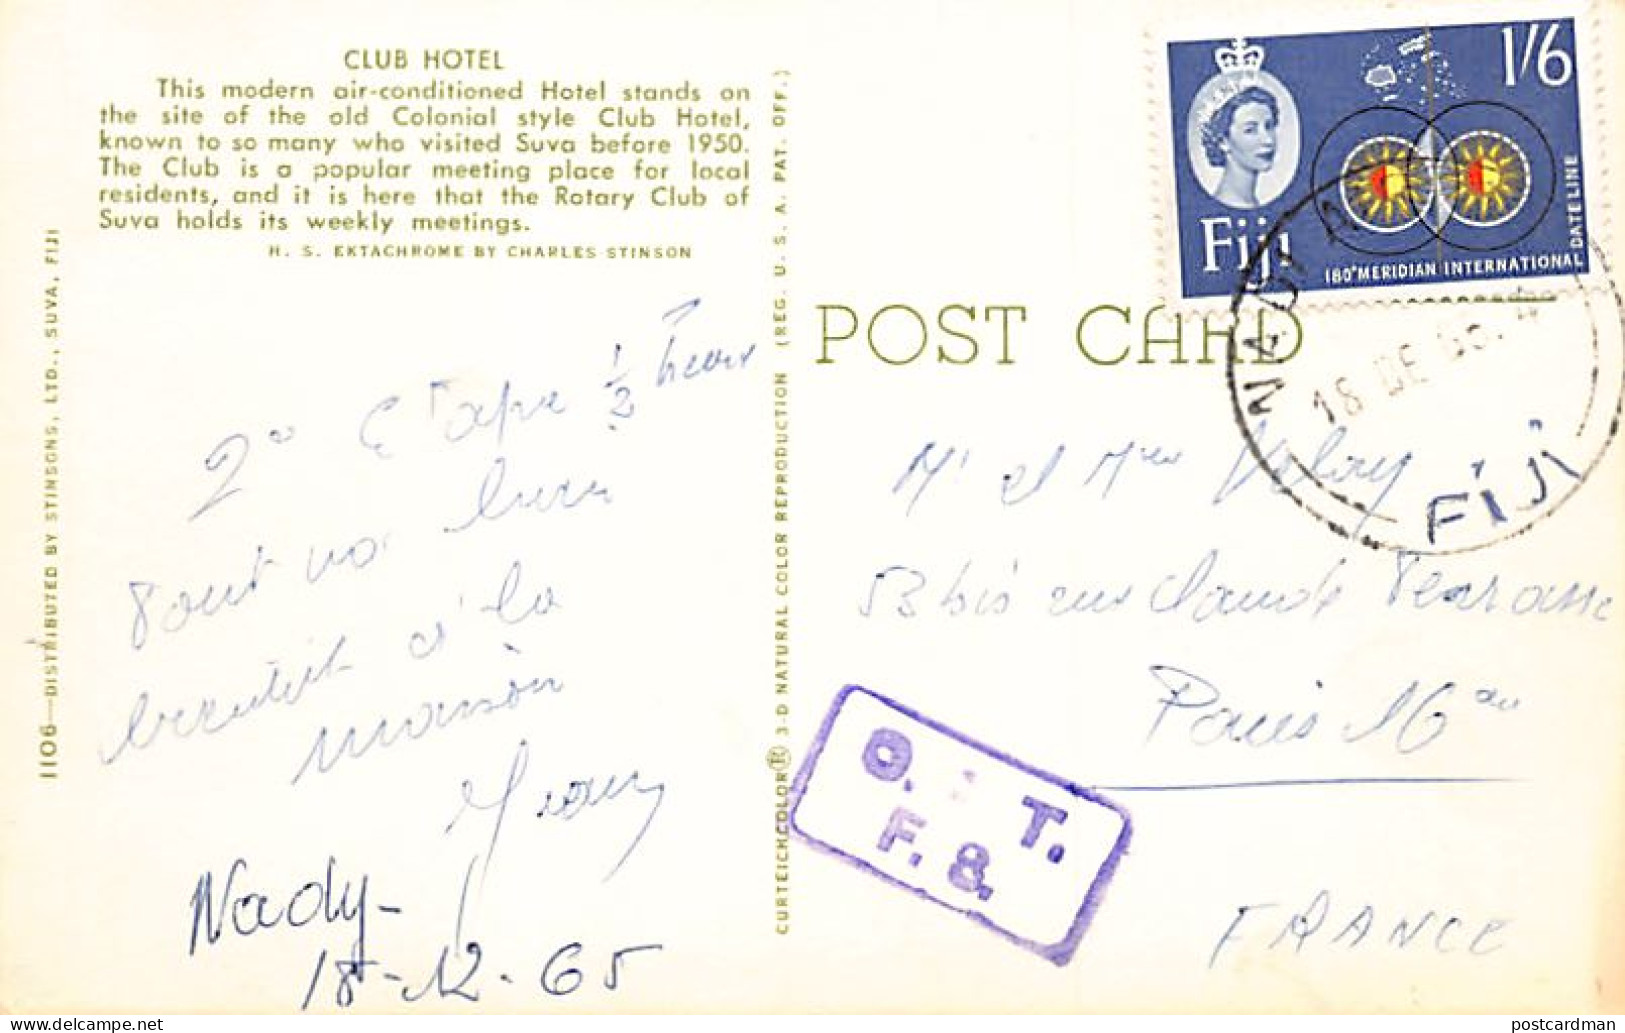 CLUB HOTEL
This modern air-conditioned Hotel stands on
the site of the old Colonial style Club Hotel,
known to so many who visited Suva before 1950.
The Club is a popular meeting place for local
residents, and it is here that the Rotary Club of
Suva holds its weekly meetings.
H. S. EKTACHROME BY CHARLES STINSON
1106—DISTRIBUTED BY STINSONS, LTD., SUVA, FIJI
2° Etape ½ heure
Tout va bien
bientôt à la
maison
Nady-
18-12-65
CURTEICHCOLOR® 3-D NATURAL COLOR REPRODUCTION (REG. U. S. A. PAT. OFF.)
1/6
Fiji
180° MERIDIAN INTERNATIONAL DATE LINE
POST CARD
NADI
18 DE 65
FIJI
Mr et Mme
53 bis rue Claude Terrasse
Paris 16
O. T.
F. 8.
FRANCE
delcampe.net
postcardman